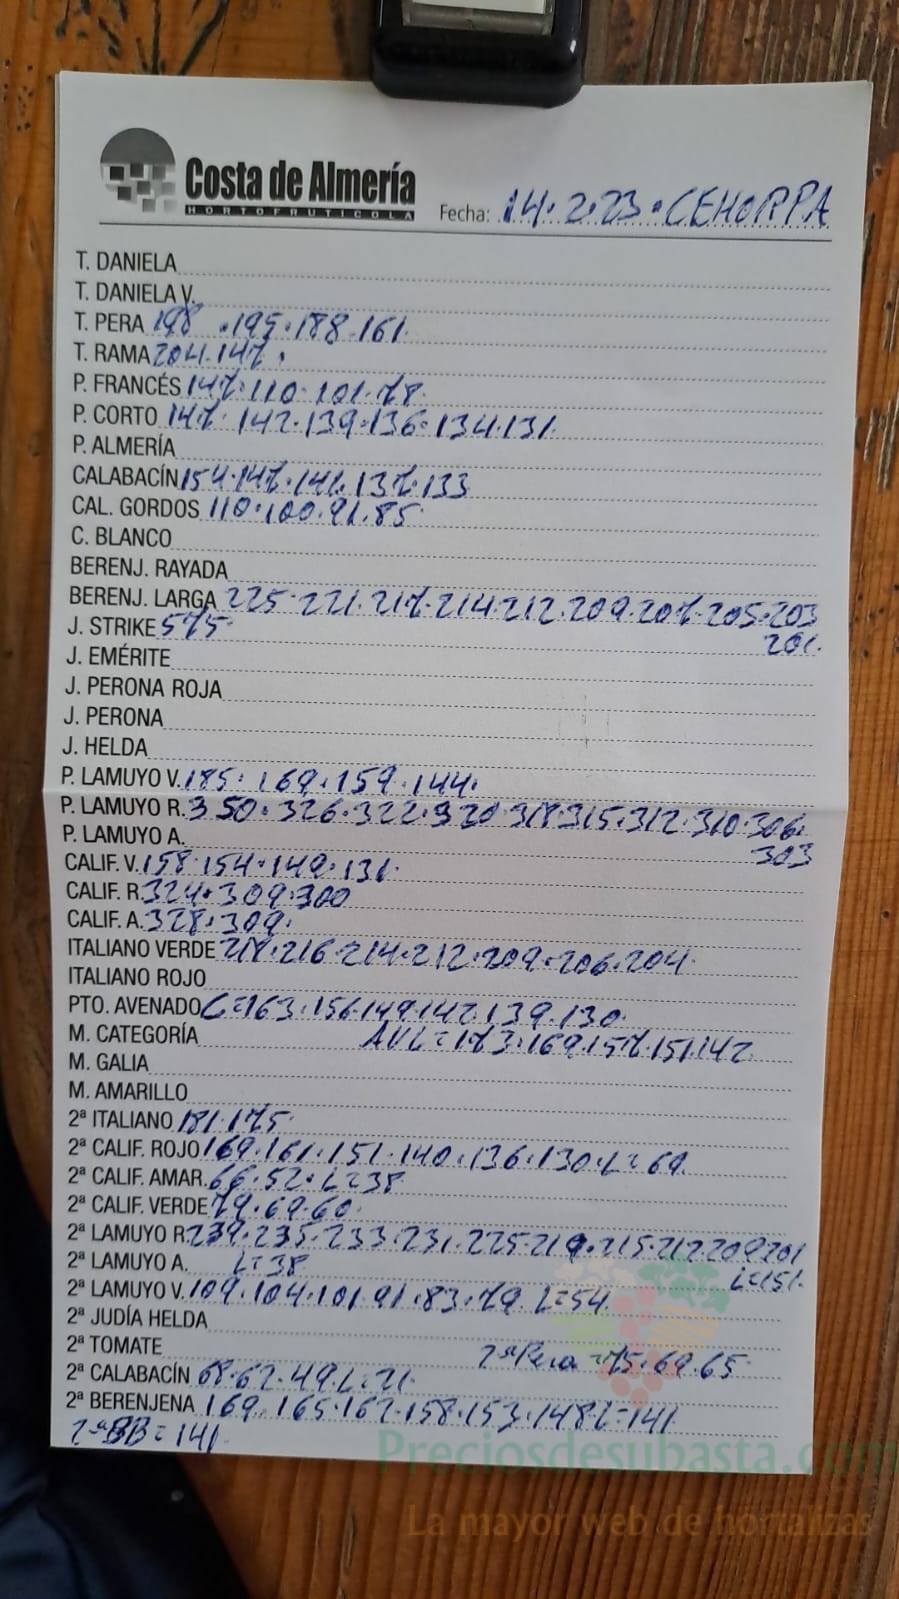 Costa de Almería
HORTOFRUTICOLA
Fecha: 14.2.23 . CEHORPA
T. DANIELA
T. DANIELA V.
T. PERA 198 . 195 . 188 . 161.
T. RAMA 204 . 147 .
P. FRANCÉS 147 . 110 . 101 . 78.
P. CORTO 147 . 142 . 139 . 136 . 134 . 131.
P. ALMERÍA
CALABACÍN 154 . 147 . 141 . 137 . 133
CAL. GORDOS 110 . 100 . 91 . 85.
C. BLANCO
BERENJ. RAYADA
BERENJ. LARGA 225 . 221 . 217 . 214 . 212 . 209 . 207 . 205 . 203
201.
J. STRIKE 575.
J. EMÉRITE
J. PERONA ROJA
J. PERONA
J. HELDA
P. LAMUYO V. 185 . 169 . 159 . 144.
P. LAMUYO R. 350 . 326 . 322 . 320 . 318 . 315 . 312 . 310 . 306.
303
P. LAMUYO A.
CALIF. V. 158 . 154 . 149 . 131.
CALIF. R. 324 . 309 . 300
CALIF. A. 328 . 309.
ITALIANO VERDE 218 . 216 . 214 . 212 . 209 . 206 . 204.
ITALIANO ROJO
PTO. AVENADO C=163 . 156 . 149 . 142 . 139 . 130.
M. CATEGORÍA AVL=173 . 169 . 157 . 151 . 142
M. GALIA
M. AMARILLO
2ª ITALIANO 181 . 175.
2ª CALIF. ROJO 169 . 161 . 151 . 140 . 136 . 130 . L=69.
2ª CALIF. AMAR. 66 . 52 . L=38
2ª CALIF. VERDE 79 . 69 . 60.
2ª LAMUYO R. 239 . 235 . 233 . 231 . 225 . 219 . 215 . 212 . 209 . 201
L=151.
2ª LAMUYO A. L=38
2ª LAMUYO V. 109 . 104 . 101 . 91 . 83 . 79 . L=54.
2ª JUDÍA HELDA
2ª TOMATE 2ª Pera = 75 . 69 . 65.
2ª CALABACÍN 68 . 62 . 49 . L=21.
2ª BERENJENA 169 . 165 . 162 . 158 . 153 . 148 . L=141.
2ª BB = 141.
Preciosdesubasta.com
La mayor web de hortalizas